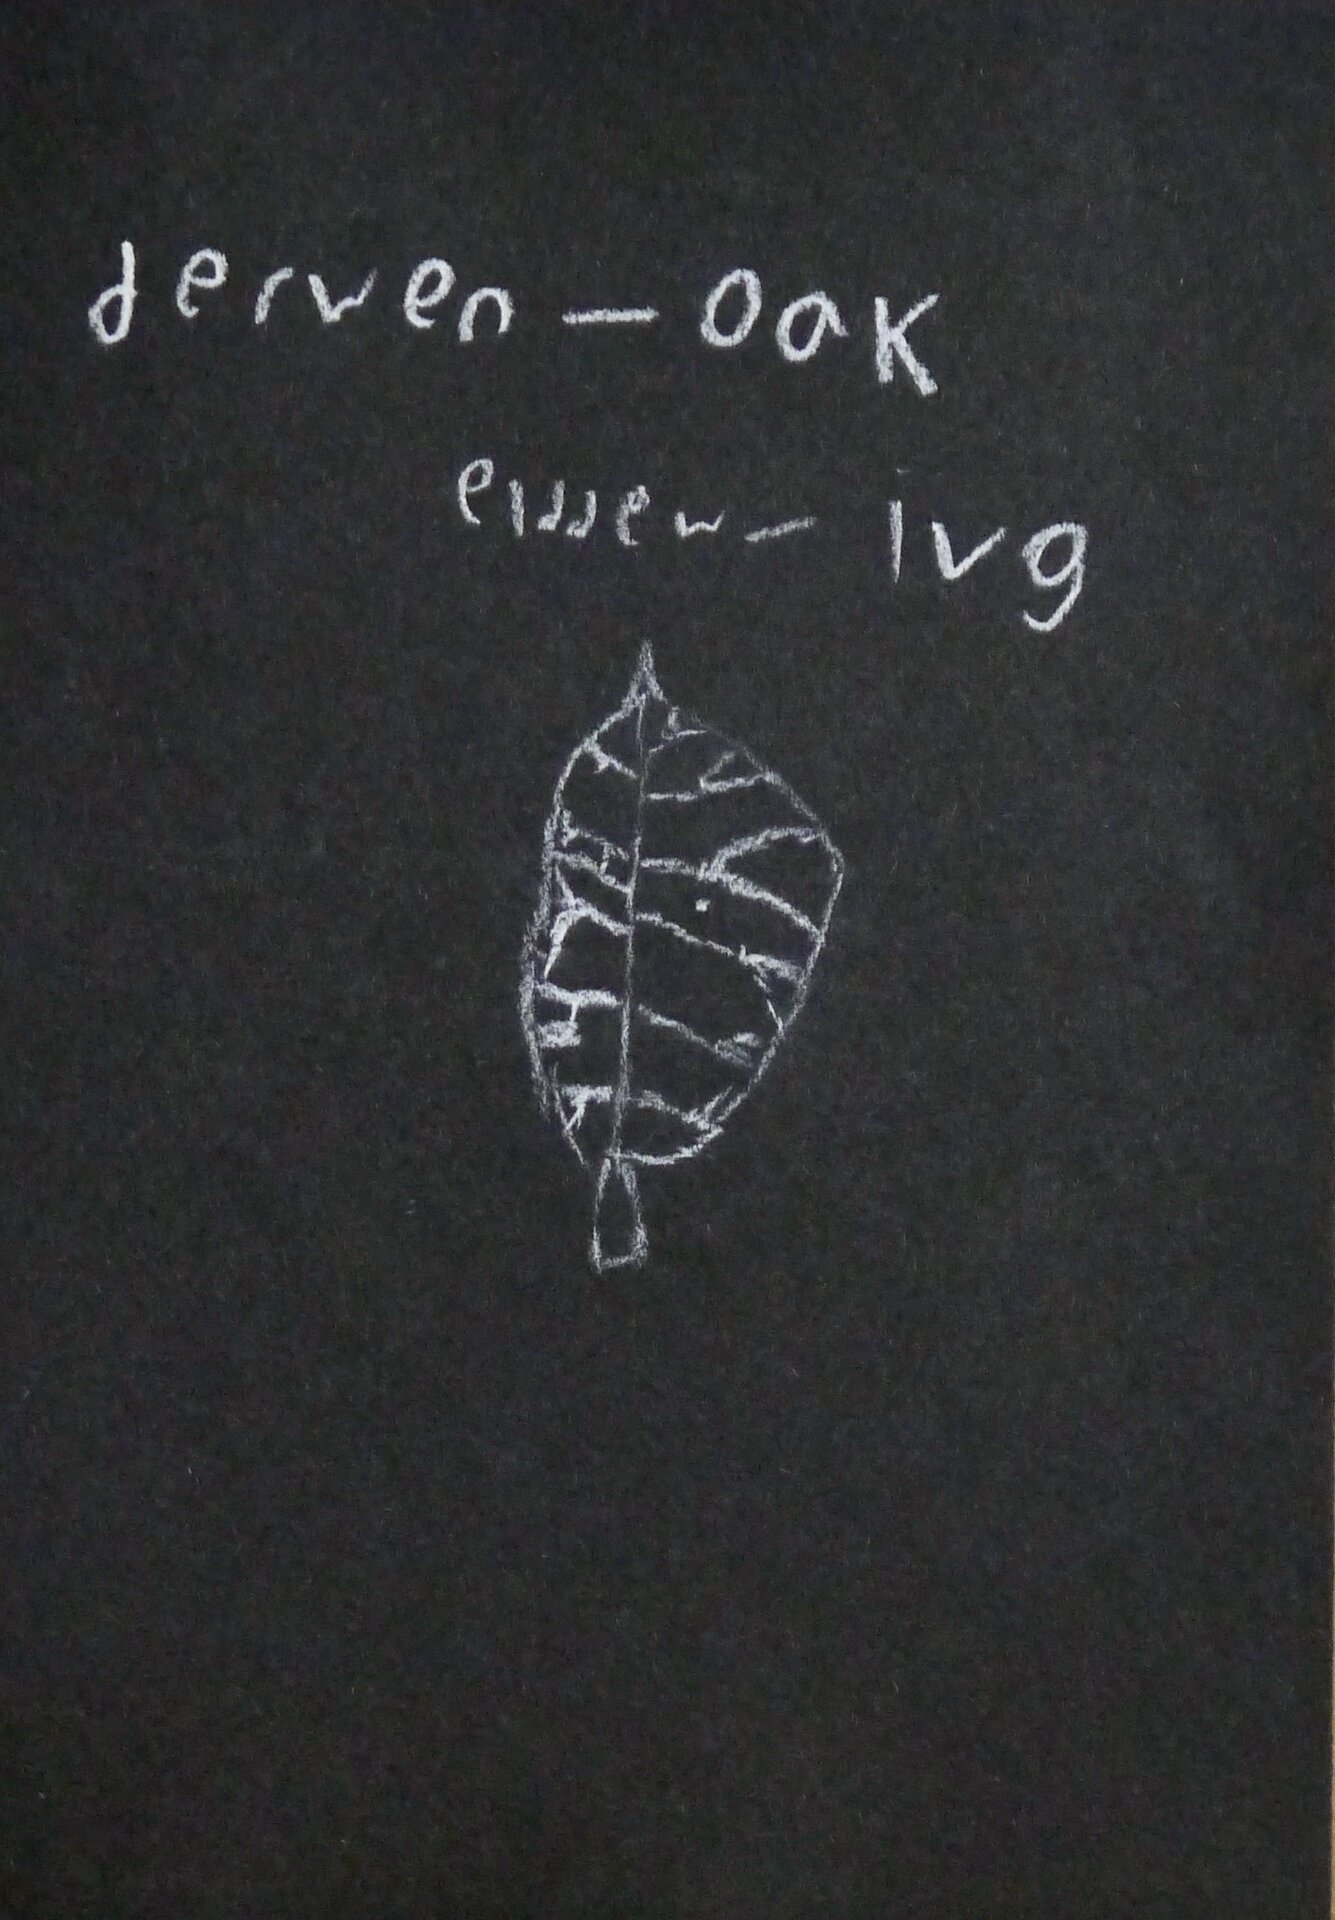 derwen – oak
eiddew – ivy